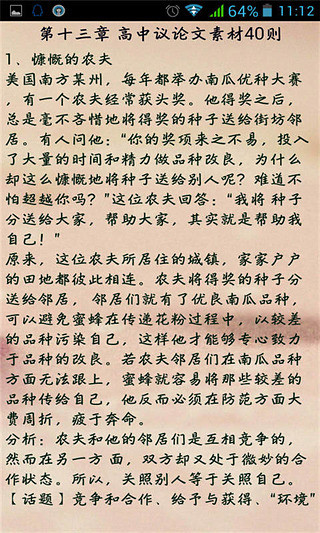 64% 11:12
第十三章 高中议论文素材40则
1、慷慨的农夫
美国南方某州，每年都举办南瓜优种大赛
，有一个农夫经常获头奖。他得奖之后，
总是毫不吝惜地将得奖的种子送给街坊邻
居。有人问他：“你的奖项来之不易，投入
了大量的时间和精力做品种改良，为什么
却这么慷慨地将种子送给别人呢？难道不
怕超越你吗？”这位农夫回答：“我将 种子
分送给大家，帮助大家，其实就是帮助我
自己！”
原来，这位农夫所居住的城镇，家家户户
的田地都彼此相连。农夫将得奖的种子分
送给邻居， 邻居们就有了优良南瓜品种，
可以避免蜜蜂在传递花粉过程中，以较差
的品种污染自己，这样他才能够专心致力
于品种的改良。若农夫邻居们在南瓜品种
方面无法跟上，蜜蜂就容易将那些较差的
品种传给自己，他反而必须在防范方面大
费周折，疲于奔命。
分析：农夫和他的邻居们是互相竞争的，
然而在另一方面，双方却又处于微妙的合
作状态。所以，关照别人等于关照自己。
【话题】竞争和合作、给予与获得、“环境”